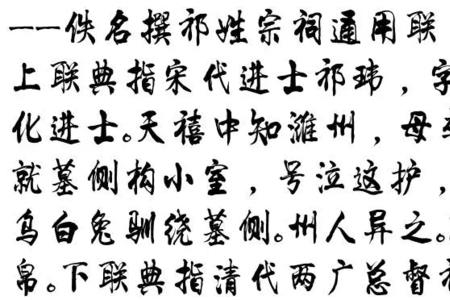 ——佚名撰祁姓宗祠通用联
上联典指宋代进士祁玮，字
化进士。天禧中知潍州，母
就墓侧构小室，号泣这护，
乌白兔驯绕墓侧。州人异之。
帛。下联典指清代两广总督祁